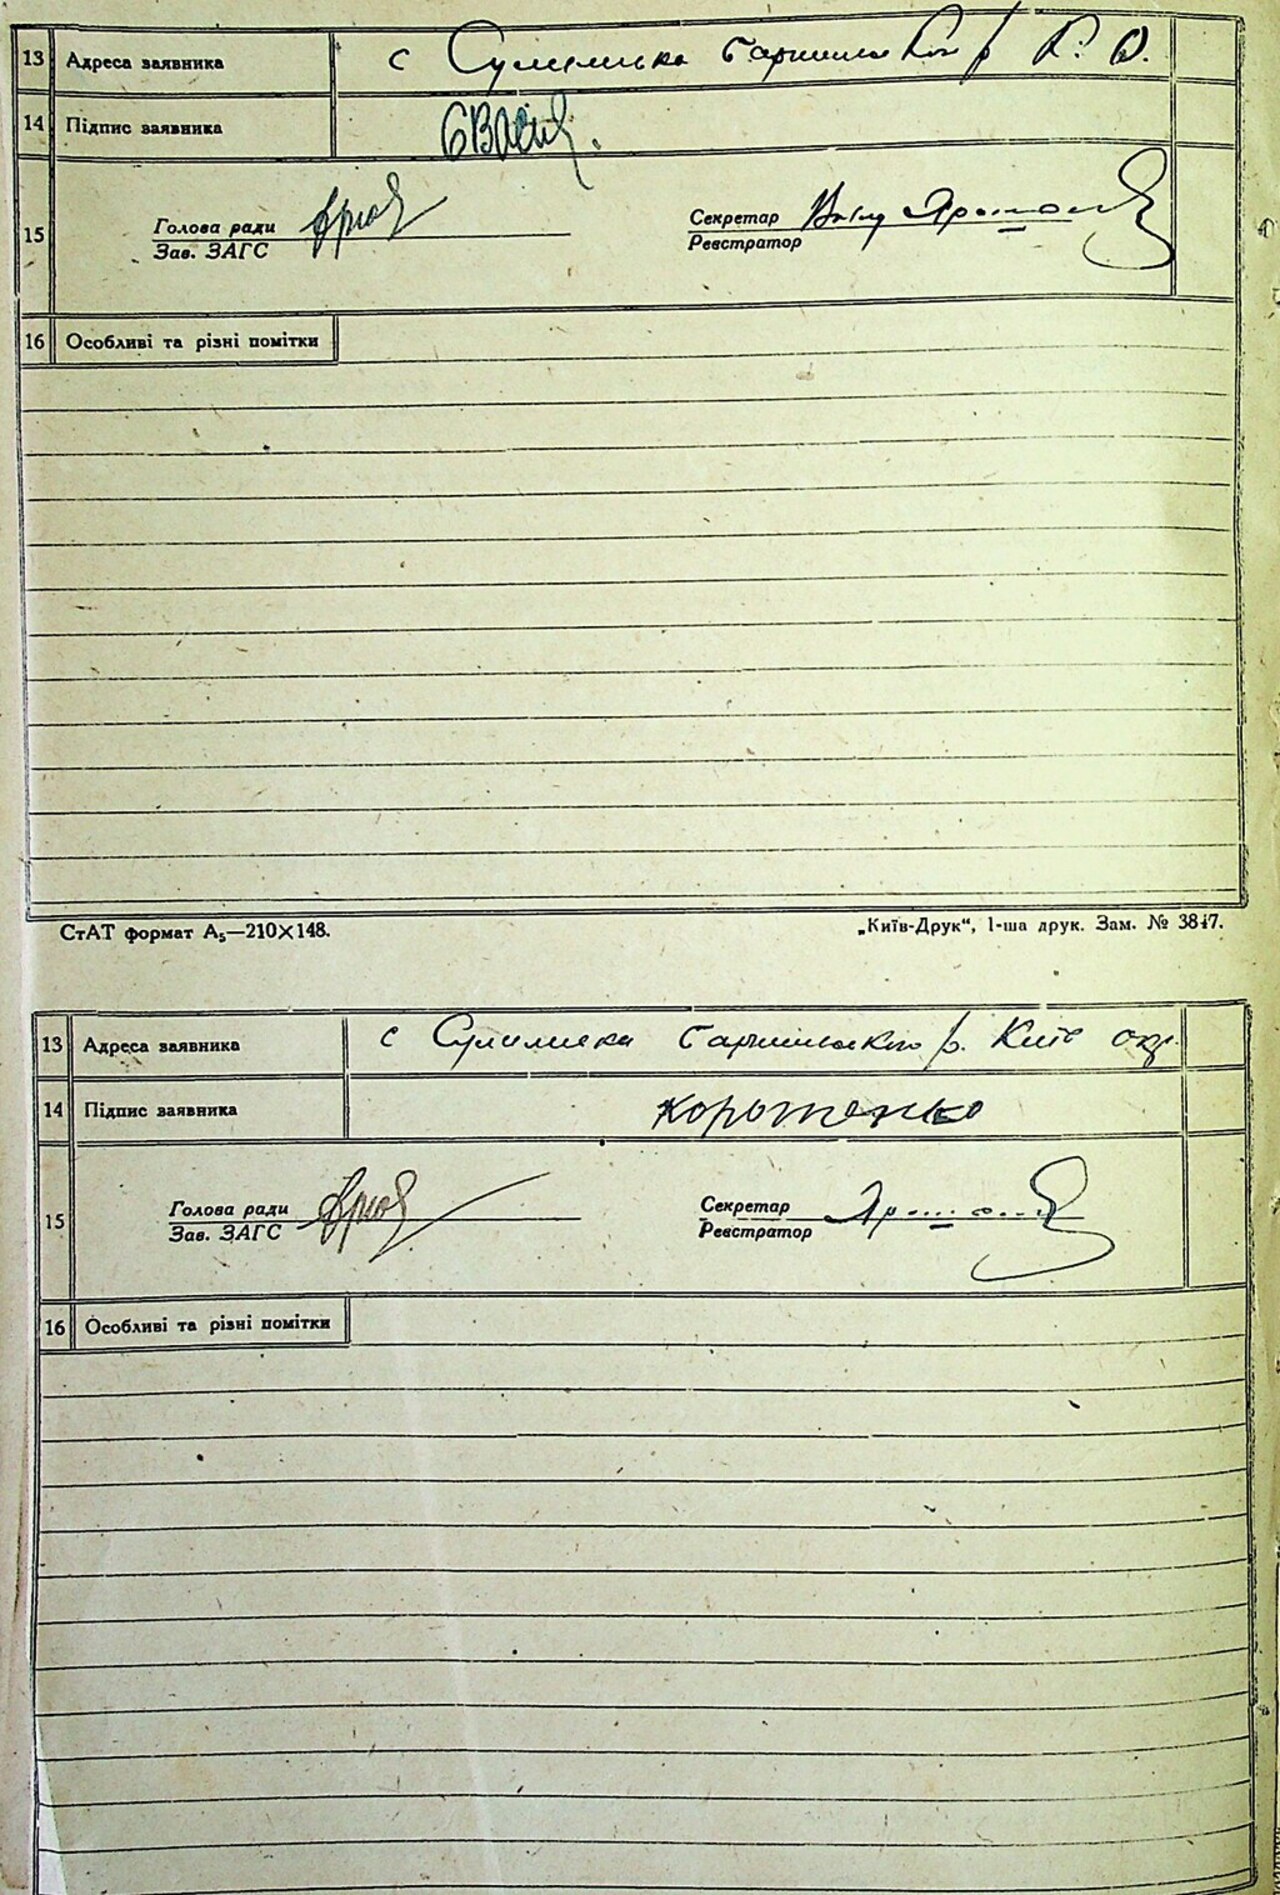 13 Адреса заявника с Сулимивка Баришівськ р. К. О.
14 Підпис заявника ЄВасил.
15 Голова ради
Зав. ЗАГС
Секретар
Реєстратор
16 Особливі та різні помітки
СтАТ формат А₅—210×148.
„Київ-Друк“, 1-ша друк. Зам. № 3847.
13 Адреса заявника с Сулимивка Баришівського р. Київ окр.
14 Підпис заявника Коротенко
15 Голова ради
Зав. ЗАГС
Секретар
Реєстратор
16 Особливі та різні помітки